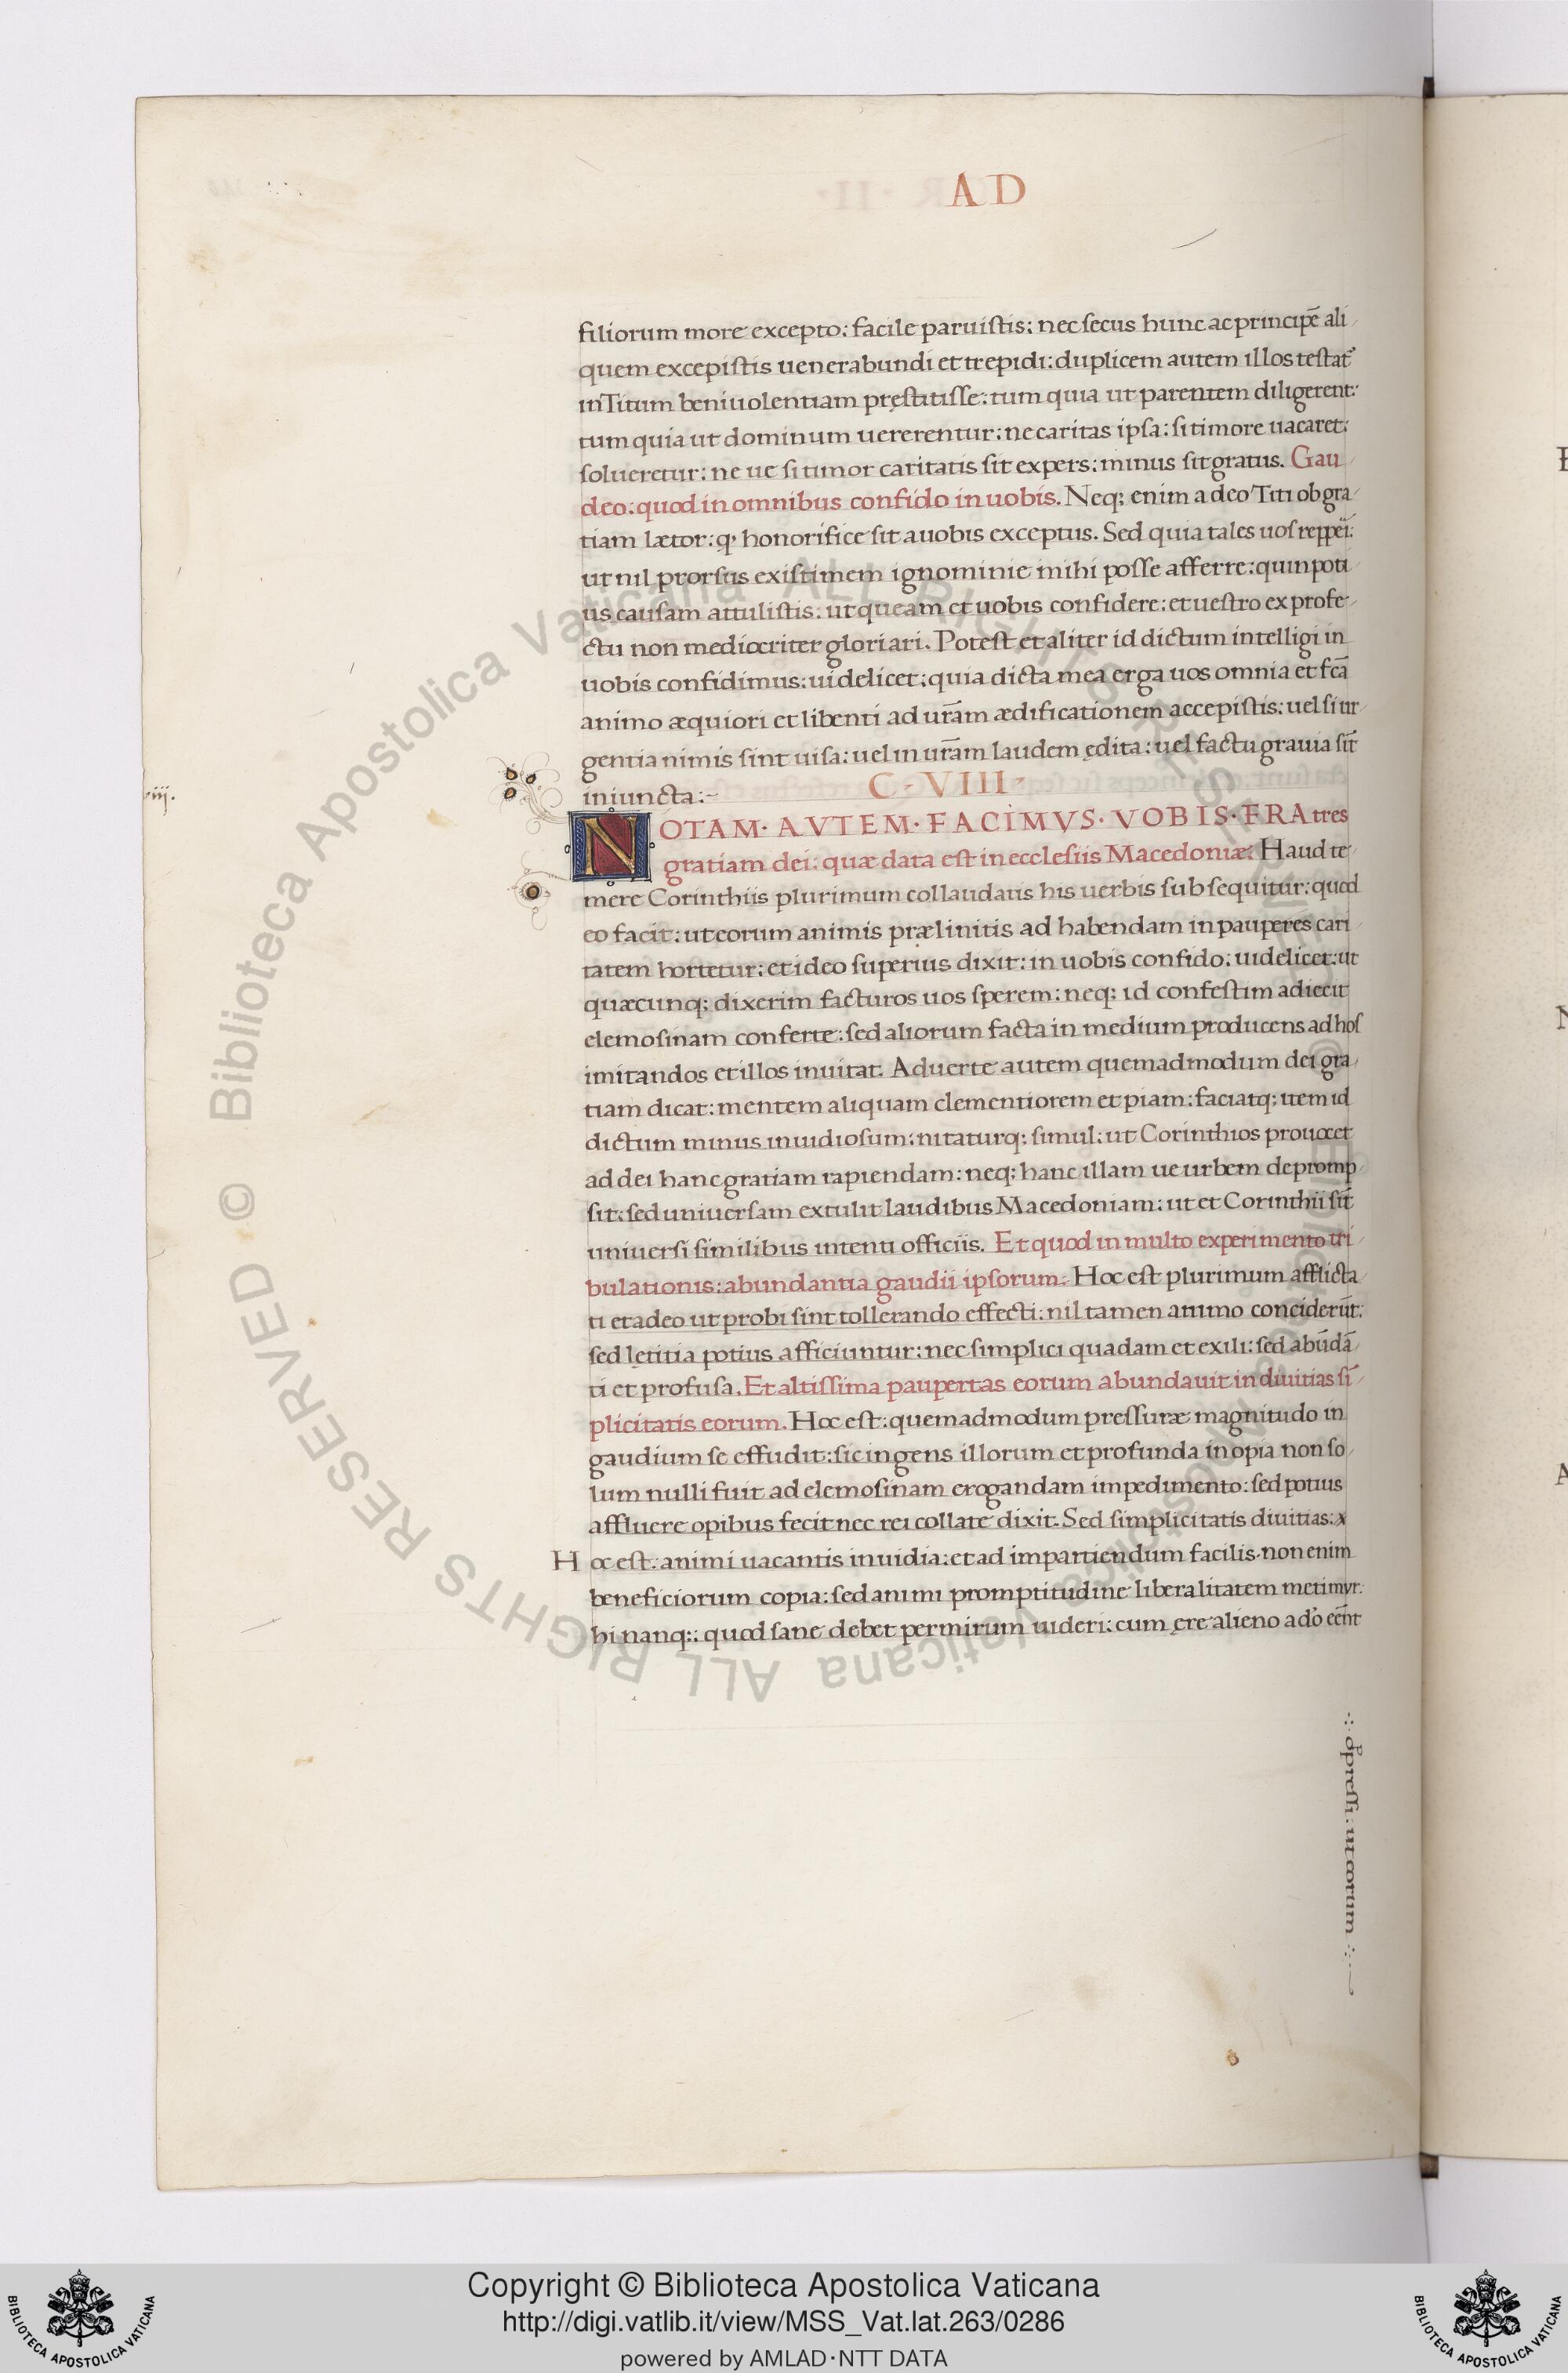 AD
filiorum more excepto: facile paruistis: nec secus hunc ac principē ali
quem excepistis uenerabundi et trepidi: duplicem autem illos testat᷒
in Titum beniuolentiam pręstitisse: tum quia ut parentem diligerent:
tum quia ut dominum uererentur: ne caritas ipsa: si timore uacaret:
solueretur: ne ue si timor caritatis sit expers: minus sit gratus. Gau
deo: quod in omnibus confido in uobis. Neq; enim adeo Titi ob gra
tiam lætor: q honorifice sit a uobis exceptus. Sed quia tales uos
ut nil prorsus existimem ignominie mihi posse afferre: quin poti
us causam attulistis: ut queam et uobis confidere: et uestro ex profe
ctu non mediocriter gloriari. Potest et aliter id dictum intelligi in
uobis confidimus: uidelicet: quia dicta mea erga uos omnia et fcā
animo æquiori et libenti ad ur̄am ædificationem accepistis: uel si ur
gentia nimis sint uisa: uel in ur̄am laudem ędita: uel factu grauia sīt
iniuncta:~
C· VIII·
viij.
NOTAM· AVTEM· FACIMVS· VOBIS· FRAtres
gratiam dei: quæ data est in ecclesiis Macedoniæ. Haud te
mere Corinthiis plurimum collaudatis his uerbis subsequitur: quod
eo facit: ut eorum animis prælinitis ad habendam in pauperes cari
tatem hortetur: et ideo superius dixit: in uobis confido: uidelicet: ut
quæcunq; dixerim facturos uos sperem: neq; id confestim adiecit
elemosinam conferte: sed aliorum facta in medium producens ad hos
imitandos et illos inuitat. Aduerte autem quemadmodum dei gra
tiam dicat: mentem aliquam clementiorem et piam: faciatq; item id
dictum minus inuidiosum: nitaturq; simul: ut Corinthios prouocet
ad dei hanc gratiam rapiendam: neq; hanc illam ue urbem depromp
sit: sed uniuersam extulit laudibus Macedoniam: ut et Corinthii sīt
uniuersi similibus intenti officiis. Et quod in multo experimento tri
bulationis: abundantia gaudii ipsorum. Hoc est plurimum afflicta
ti et adeo ut probi sint tollerando effecti: nil tamen animo conciderūt:
sed lętitia potius afficiuntur: nec simplici quadam et exili: sed abūdā
ti et profusa. Et altissima paupertas eorum abundauit in diuitias sī
plicitatis eorum. Hoc est: quemadmodum pressuræ magnitudo in
gaudium se effudit: sic ingens illorum et profunda inopia non so
lum nulli fuit ad elemosinam erogandam impedimento: sed potius
affluere opibus fecit nec rei collate dixit. Sed simplicitatis diuitias: x
Hoc est: animi uacantis inuidia: et ad impartiendum facilis. non enim
beneficiorum copia: sed animi promptitudine liberalitatem metimur.
hi nanq;: quod sane debet permirum uideri: cum ęre alieno adō eēnt
oppressi: ut eorum
© Biblioteca Apostolica Vaticana ALL RIGHTS RESERVED © Biblioteca Apostolica Vaticana ALL RIGHTS RESERVED
Copyright © Biblioteca Apostolica Vaticana
http://digi.vatlib.it/view/MSS_Vat.lat.263/0286
powered by AMLAD·NTT DATA
BIBLIOTECA APOSTOLICA VATICANA
BIBLIOTECA APOSTOLICA VATICANA